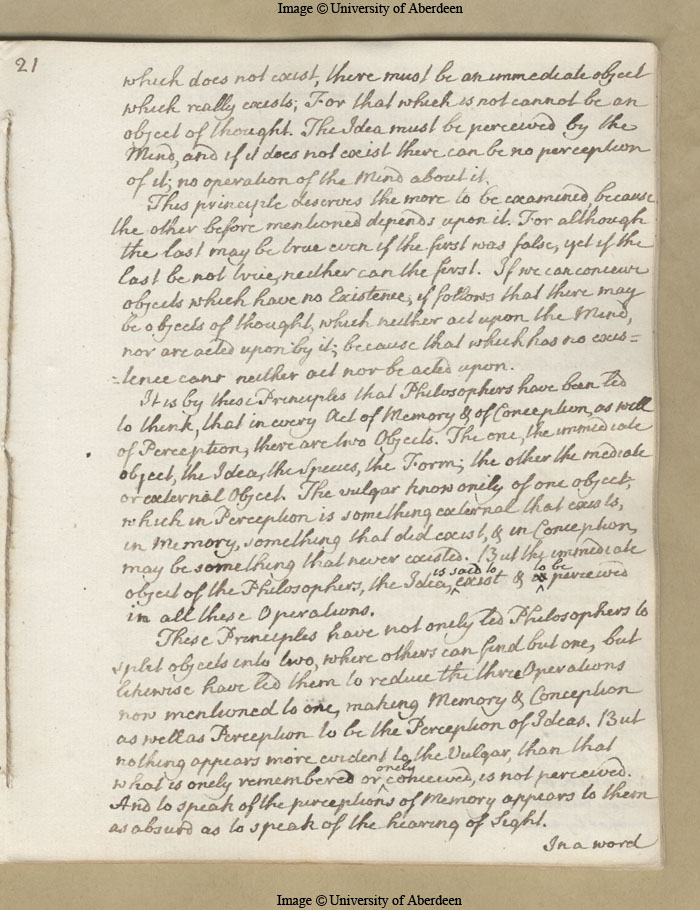 Image © University of Aberdeen
21
which does not exist, there must be an immediate object
which really exists; For that which is not cannot be an
object of thought. The Idea must be perceived by the
Mind, and if it does not exist there can be no perception
of it; no operation of the Mind about it.
This principle deserves the more to be examined, because
the other before mentioned depends upon it. For although
the last may be true even if the first was false, yet if the
last be not true, neither can the first. If we can conceive
objects which have no Existence, it follows that there may
be objects of thought, which neither act upon the Mind,
nor are acted upon by it; because that which has no exis=
=tence can neither act nor be acted upon.
It is by these Principles that Philosophers have been led
to think, that in every Act of Memory & of Conception, as well
of Perception, there are two Objects. The one, the immediate
object, the Idea, the Species, the Form; the other the mediate
or external Object. The vulgar know onely of one object,
which in Perception is something external that exists,
in Memory, something that did exist, & in Conception,
may be something that never existed. But the immediate
object of the Philosophers, the Idea, is said to exist & to be perceived
in all these Operations.
These Principles have not onely led Philosophers to
split objects into two, where others can find but one, but
likewise have led them to reduce the three Operations
now mentioned to one, making Memory & Conception
as well as Perception to be the Perception of Ideas. But
nothing appears more evident to the Vulgar, than that
what is onely remembered or onely conceived, is not perceived.
And to speak of the perceptions of Memory appears to them
as absurd as to speak of the hearing of Sight.
In a word
Image © University of Aberdeen